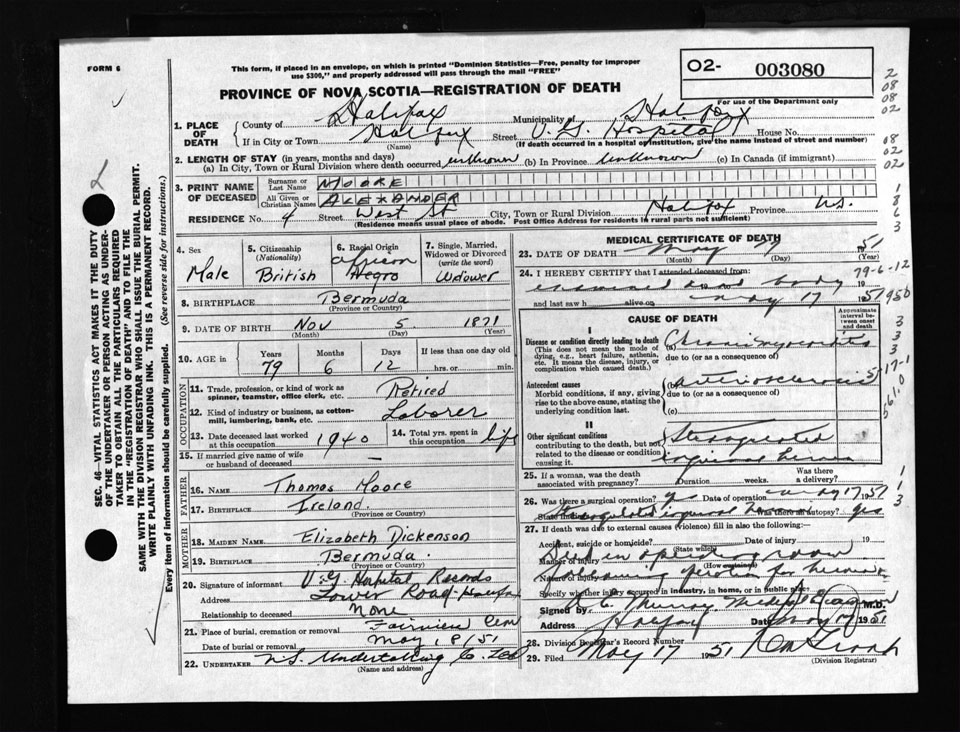 FORM 6
This form, if placed in an envelope, on which is printed "Dominion Statistics—Free, penalty for improper
use $300," and properly addressed will pass through the mail "FREE"
O2- 003080
PROVINCE OF NOVA SCOTIA—REGISTRATION OF DEATH
For use of the Department only
1. PLACE OF DEATH
County of Halifax Municipality of Halifax
If in City or Town Halifax Street V. G. Hospital House No.
(Name) (If death occurred in a hospital or institution, give the name instead of street and number)
2. LENGTH OF STAY (in years, months and days)
(a) In City, Town or Rural Division where death occurred unknown (b) In Province unknown (c) In Canada (if immigrant)
3. PRINT NAME OF DECEASED
Surname or Last Name MOORE
All Given or Christian Names ALEXANDER
RESIDENCE No. 4 Street West St. City, Town or Rural Division Halifax Province N.S.
(Residence means usual place of abode. Post Office Address for residents in rural parts not sufficient)
4. Sex Male
5. Citizenship (Nationality) British
6. Racial Origin African Negro
7. Single, Married, Widowed or Divorced (write the word) Widower
8. BIRTHPLACE Bermuda
(Province or Country)
9. DATE OF BIRTH Nov 5 1871
(Month) (Day) (Year)
10. AGE in Years 79 Months 6 Days 12 If less than one day old hrs. or min.
OCCUPATION
11. Trade, profession, or kind of work as spinner, teamster, office clerk, etc. Retired
12. Kind of industry or business, as cotton-mill, lumbering, bank, etc. Laborer
13. Date deceased last worked at this occupation 1940
14. Total yrs. spent in this occupation life
15. If married give name of wife or husband of deceased —
FATHER
16. NAME Thomas Moore
17. BIRTHPLACE Ireland
(Province or Country)
MOTHER
18. MAIDEN NAME Elizabeth Dickenson
19. BIRTHPLACE Bermuda.
(Province or Country)
20. Signature of informant V. G. Hospital Records
Address Tower Road Halifax
Relationship to deceased None
21. Place of burial, cremation or removal Fairview Cem
Date of burial or removal May 18/51
22. UNDERTAKER N.S. Undertaking Co. Ltd
(Name and Address)
MEDICAL CERTIFICATE OF DEATH
23. DATE OF DEATH May 17 1951
(Month) (Day) (Year)
24. I HEREBY CERTIFY that I attended deceased from:
examined dead body 19
and last saw h alive on May 17 1951
CAUSE OF DEATH
Approximate interval between onset and death
I
Disease or condition directly leading to death
(This does not mean the mode of dying, e.g., heart failure, asthenia, etc. It means the disease, injury, or complication which caused death.)
(a) Chronic myocarditis
due to (or as a consequence of)
Antecedent causes
Morbid conditions, if any, giving rise to the above cause, stating the underlying condition last.
(b) Arteriosclerosis
due to (or as a consequence of)
(c)
II
Other significant conditions
contributing to the death, but not related to the disease or condition causing it.
Strangulated inguinal hernia
25. If a woman, was the death associated with pregnancy? Duration weeks. Was there a delivery?
26. Was there a surgical operation? yes Date of operation May 17 1951
State findings Strangulated inguinal hernia Was there autopsy? yes
27. If death was due to external causes (violence) fill in also the following:
Accident, suicide or homicide? Date of injury 19
(State which)
Manner of injury Died in operating room
(How sustained)
Nature of injury following operation for hernia
Specify whether injury occurred in industry, in home, or in public place
Signed by Murray, M.D.
Address Halifax Date May 17 1951
28. Division Registrar's Record Number
29. Filed May 17 1951
(Division Registrar)
SEC. 46—VITAL STATISTICS ACT MAKES IT THE DUTY
OF THE UNDERTAKER OR PERSON ACTING AS UNDER-
TAKER TO OBTAIN ALL THE PARTICULARS REQUIRED
IN THE "REGISTRATION OF DEATH" AND TO FILE THE
SAME WITH THE DIVISION REGISTRAR WHO SHALL ISSUE THE BURIAL PERMIT.
WRITE PLAINLY WITH UNFADING INK. THIS IS A PERMANENT RECORD.
Every item of information should be carefully supplied. (See reverse side for instructions.)
2
08
08
02
08
02
02
1
8
6
3
79-6-12
1950